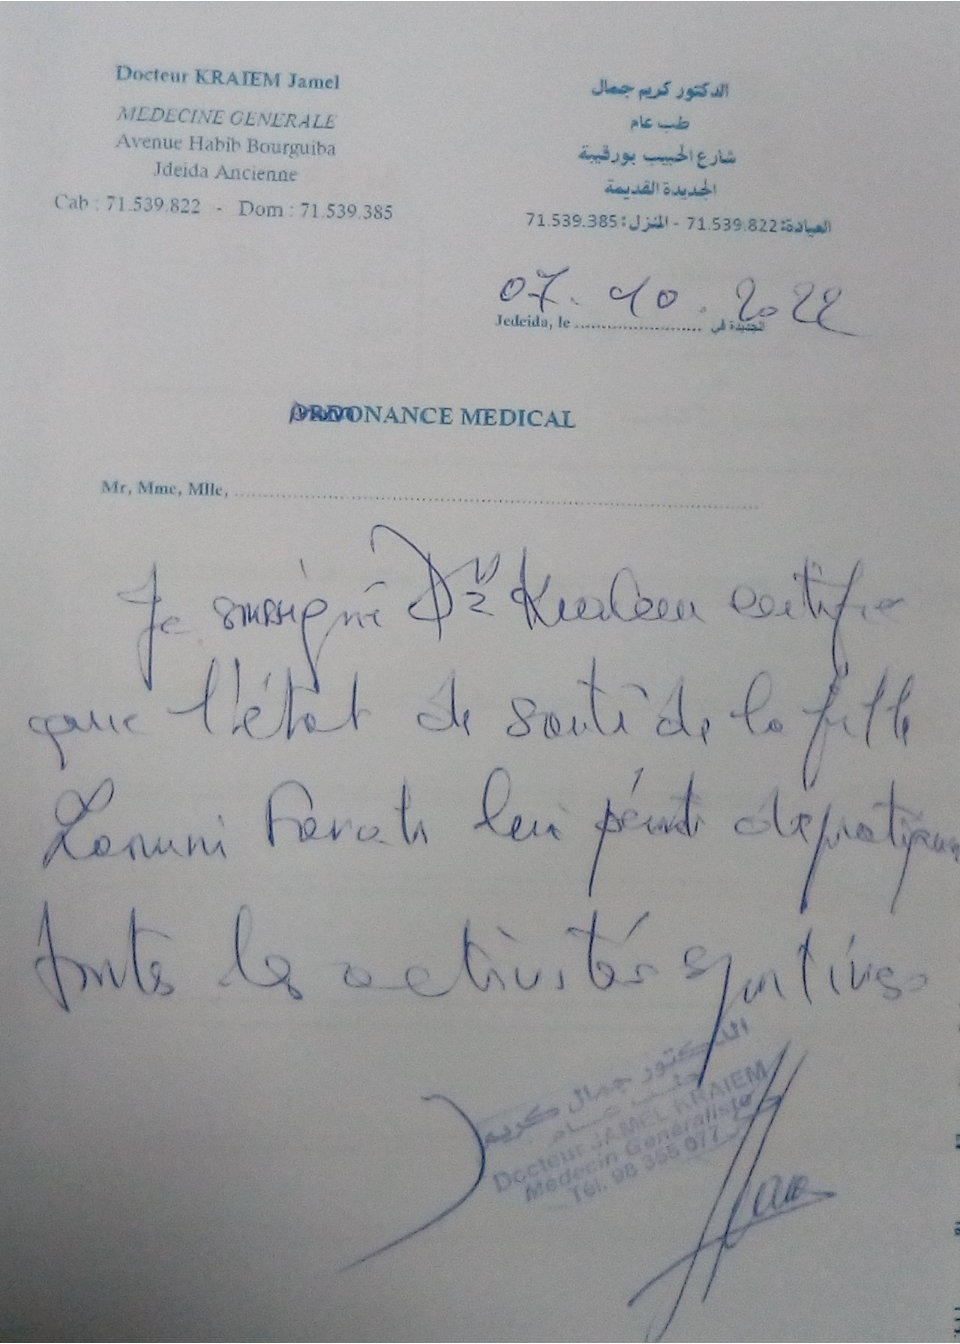 Docteur KRAIEM Jamel
MEDECINE GENERALE
Avenue Habib Bourguiba
Jdeida Ancienne
Cab : 71.539.822 - Dom : 71.539.385
الدكتور كريم جمال
طب عام
شارع الحبيب بورقيبة
الجديدة القديمة
العيادة: 71.539.822 - المنزل: 71.539.385
07. 10. 2022
Jedeida, le .............................. الجديدة في
ORDONANCE MEDICAL
Mr, Mme, Mlle, ..............................
Je soussigné Dr Kraiem certifie
que l'état de santé de la fille
Farah lui de pratiquer
toutes les activités sportives
الدكتور جمال كريم
طب عام
Docteur JAMEL KRAIEM
Médecin Généraliste
Tél. 98 355 077